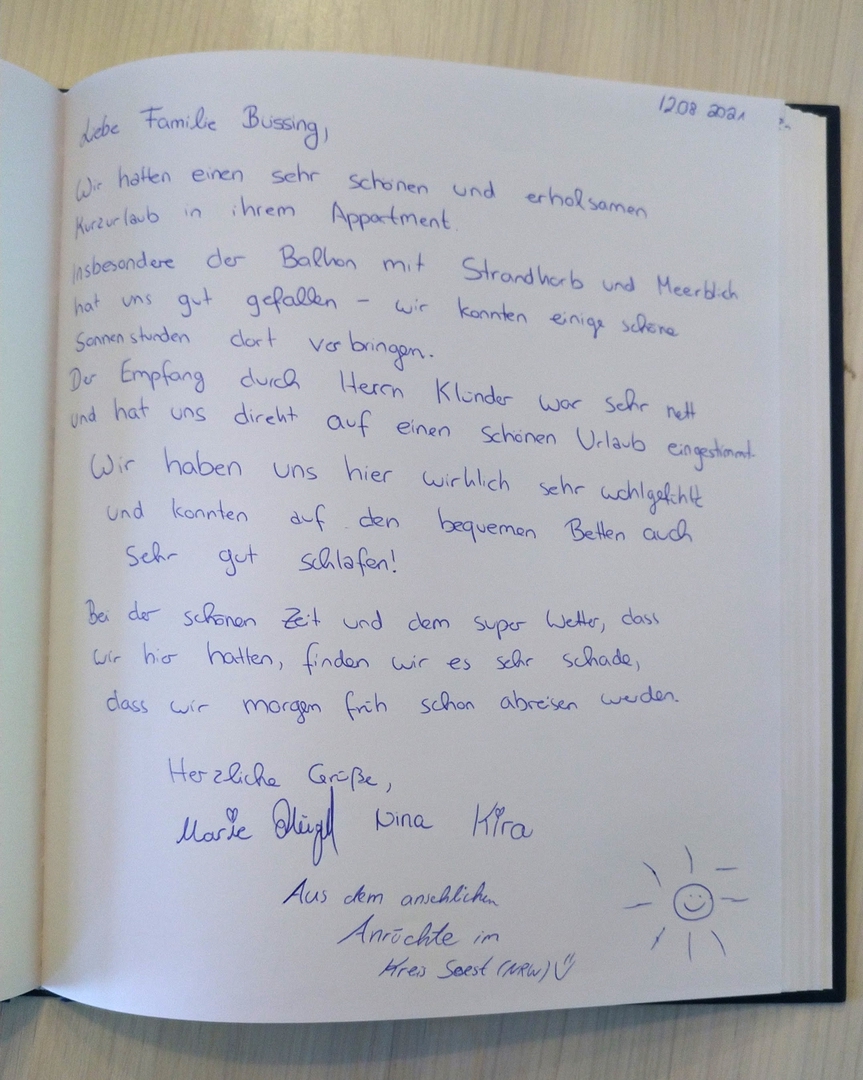 12.08 2021
Liebe Familie Büssing,
Wir hatten einen sehr schönen und erholsamen
Kurzurlaub in ihrem Appartment.
Insbesondere der Balkon mit Strandkorb und Meerblick
hat uns gut gefallen – wir konnten einige schöne
Sonnenstunden dort verbringen.
Der Empfang durch Herrn Klünder war sehr nett
und hat uns direkt auf einen schönen Urlaub eingestimmt.
Wir haben uns hier wirklich sehr wohlgefühlt
und konnten auf den bequemen Betten auch
sehr gut schlafen!
Bei der schönen Zeit und dem super Wetter, dass
wir hier hatten, finden wir es sehr schade,
dass wir morgen früh schon abreisen werden.
Herzliche Grüße,
Marie Nina Kira
Aus dem ansehlichen
Anröchte im
Kreis Soest (NRW)